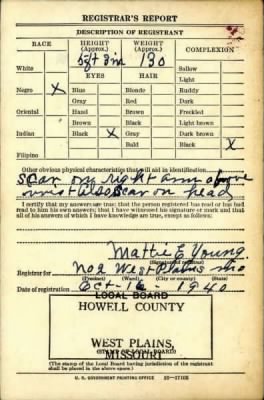 REGISTRAR'S REPORT
DESCRIPTION OF REGISTRANT
RACE HEIGHT (Approx.) WEIGHT (Approx.) COMPLEXION
5 ft 3 in 130
White EYES HAIR Sallow
Light
Negro X Blue Blonde Ruddy
Gray Red Dark
Oriental Hazel Brown Freckled
Brown Black Light brown
Indian Black X Gray Dark brown
Bald Black X
Filipino
Other obvious physical characteristics that will aid in identification
Scar on right arm above
wrist also scar on head
I certify that my answers are true; that the person registered has read or has had
read to him his own answers; that I have witnessed his signature or mark and that
all of his answers of which I have knowledge are true, except as follows:
Mattie E Young
(Signature of registrar)
Registrar for No 2 West Plains Mo
(Precinct) (Ward) (City or county) (State)
Date of registration Oct-16 1940
LOCAL BOARD
HOWELL COUNTY
WEST PLAINS,
MISSOURI
(The stamp of the Local Board having jurisdiction of the registrant
shall be placed in the above space.)
U. S. GOVERNMENT PRINTING OFFICE